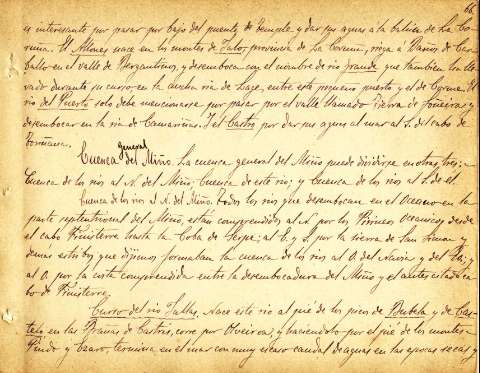 66
es interesante por pasar por bajo del puente de Bemgele y dar sus aguas á la bahia de La Co-
ruña. El Allones nace en los montes de Jalo, provincia de La Coruña, riega á Baños de Car-
ballo en el valle de Bergantiños, y desemboca con el nombre de rio grande que tambien ha lle-
vado durante su curso en la ancha ria de Lage, entre este pequeño puerto y el de Corme. El
rio del Puerto solo debe mencionarse por pasar por el valle llamado tierra de Joneiras y
desembocar en la ria de Camariñas. Y el Castro por dar sus aguas al mar al S. del cabo de
Toriñana.
Cuenca general del Miño. La cuenca general del Miño puede dividirse en otras tres:
Cuenca de los rios al N. del Miño; Cuenca de este rio; y Cuenca de los rios al S. de el.
Cuenca de los rios al N. del Miño. Todos los rios que desembocan en el Oceano en la
parte septentrional del Miño, estan comprendidos al N. por los Pirineos Oceanicos desde
el cabo Finisterre hasta la Coba de Serpe; al E. y S. por la sierra de San Simon y
demas estribos que dijimos formaban la cuenca de los rios al O. del Navia y del Eo; y
al O. por la costa comprendida entre la desembocadura del Miño y el antes citado ca-
bo de Finisterre.
Curso del rio Jallas. Nace este rio al pié de los picos de Bubela y de Cas-
telo en las Brañas de Castris, corre por Olveiroa, y haciendolo por el pié de los montes
Pindo y Ezaro, termina en el mar con muy escaso caudal de aguas en las epocas secas y